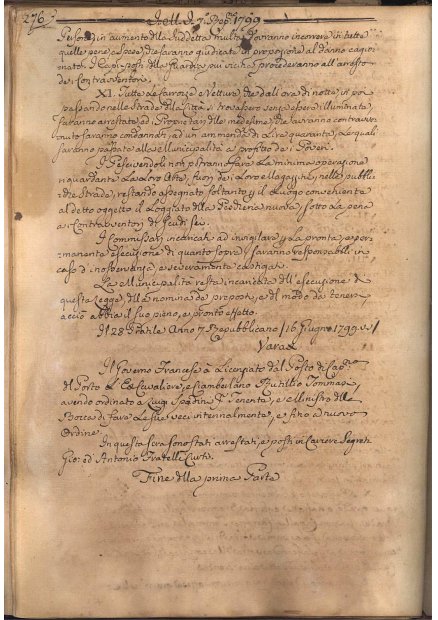 276 Dell. A. 7. Rep. 1799
Persone, in aumento della suddetta multa dovranno incorrere in tutte
quelle pene, e spese, che saranno giudicate in proporzione al danno cagio:
nato. I Capi Posti delle Guardie più vicine procederanno all'arresto
dei Contravventori.
XI. Tutte le Carrozze, e Vetture, che dall'ora di notte in poi
passando nelle Strade della Città, si trovassero senza essere illuminate,
saranno arrestate, ed i Proprietarj delle medesime, che avranno contravve:
nuto saranno condannati, ad un ammenda di Lire quaranta, le quali
saranno passate alla Municipalità a profitto dei Poveri.
I Pescivendoli non potranno fare la minima operazione
riguardante la loro Arte, fuori dei Loro Magazzini, nelle pubbli:
che Strade, restando assegnato soltanto il Luogo conveniente
al detto oggetto il Loggiato della Pescheria nuova, sotto la pena
ai Contravventori di Scudi sei.
I Commissarj incaricati ad invigilare, la pronta, e per:
manente esecuzione di quanto sopra, saranno responsabili in
caso d'inosservanza, e severamente castigati.
La Municipalità resta incaricata dell'esecuzione di
questa Legge, della nomina dei preposti, e del modo da tenersi
acciò abbia il suo pieno, e pronto effetto.
Il 28 Pratile Anno 7 Repubblicano / 16 Giugno 1799
Il Governo Francese à Licenziato dal Posto di Cap.no
del Porto il Cavaliere, e Ciamberlano Rutilio Tommasi,
avendo ordinato a Luigi Spadini P. Tenente, e al Ministro della
Bocca di fare le sue veci interinalmente, e fino a nuovo
Ordine.
In questa sera sono stati arrestati, e posti in Carcere Segreti
Gio: ed Antonio Fratelli Curti.
Fine della prima Parte